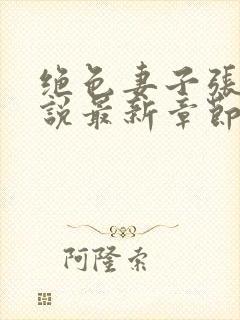 绝色妻子張
說最新章節
阿隆索